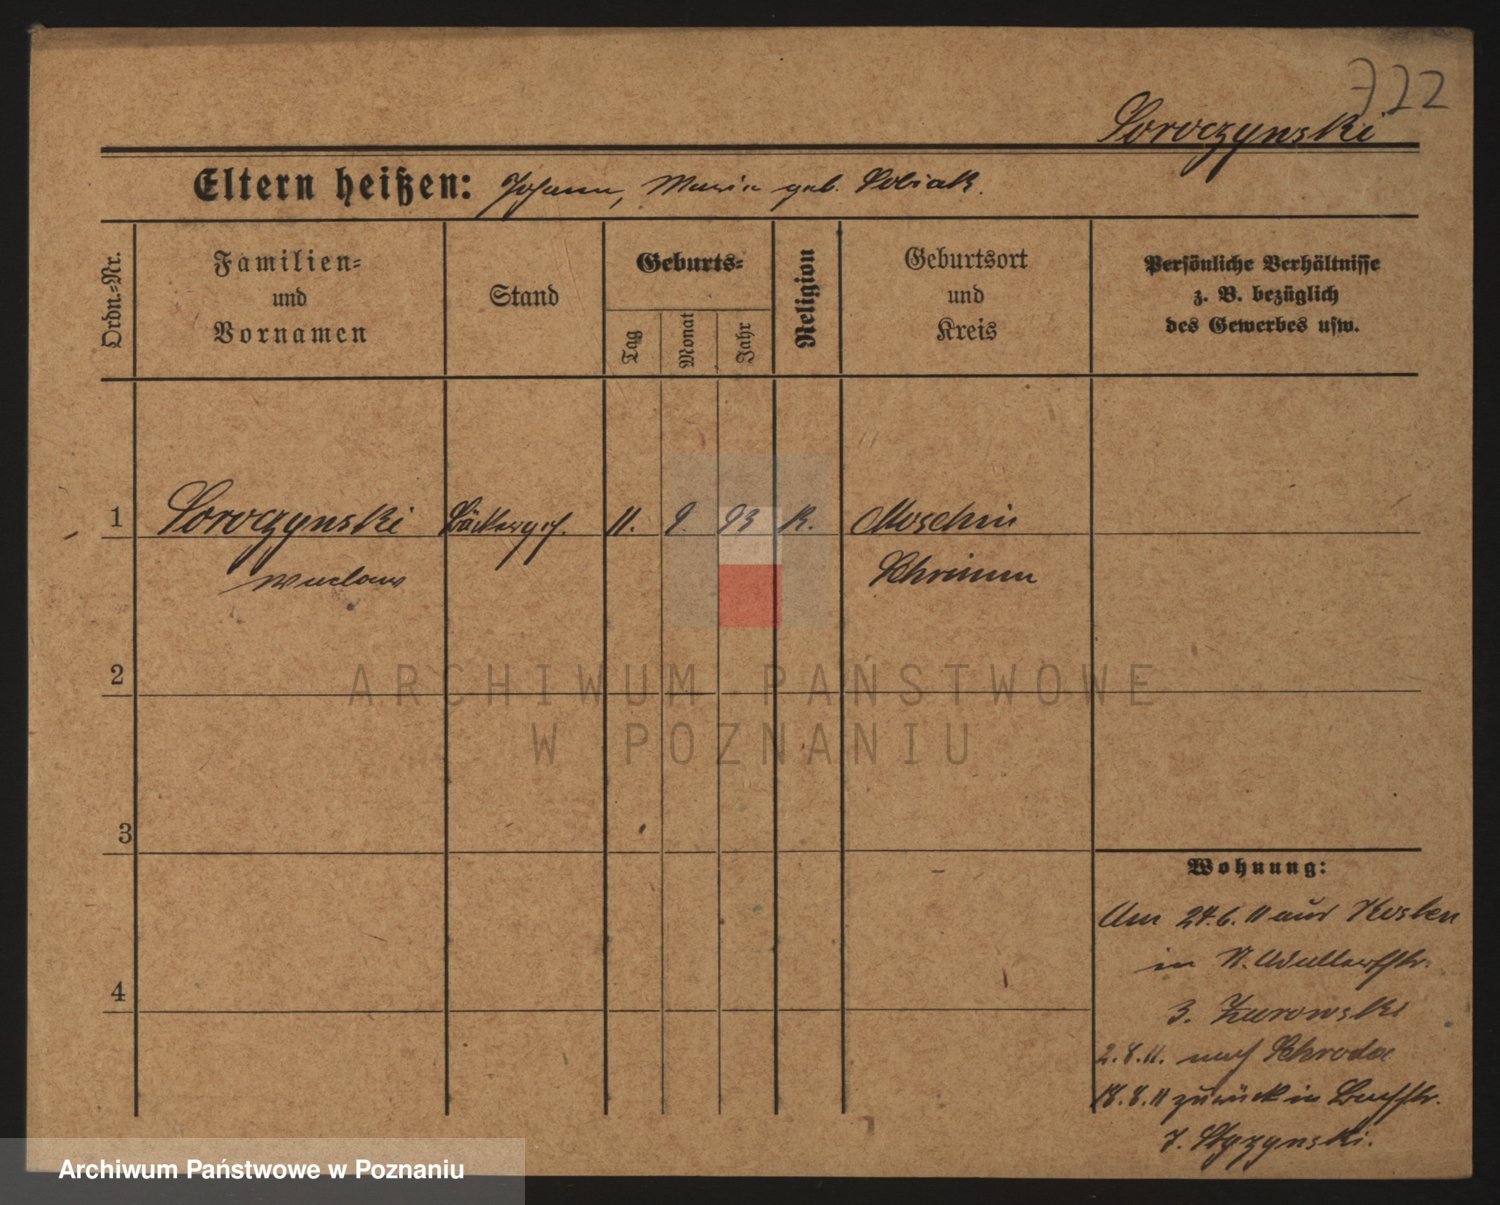 722
Soroczynski
Eltern heißen: Johann, Maria geb. Sobiak.
Ordn.=Nr.
Familien=
und
Vornamen
Stand
Geburts=
Tag
Monat
Jahr
Religion
Geburtsort
und
Kreis
Persönliche Verhältnisse
z. B. bezüglich
des Gewerbes usw.
1 Soroczynski Bäckerges. 11. 9 93 K. Moschin
Waclaw Schrimm
2
3
4
Wohnung:
Am 24.6.11 aus Kosten
in N.
3. Zurowski
2.8.11. nach Schroda
18.8.11 zurück in Buchstr.
7. Styzynski.
ARCHIWUM PAŃSTWOWE
W POZNANIU
Archiwum Państwowe w Poznaniu